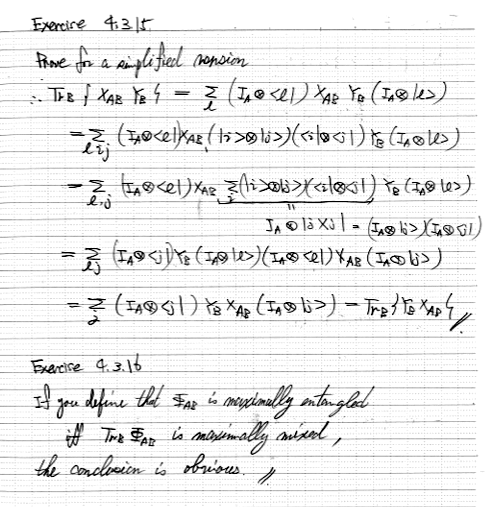 Exercise 4.3.15
Prove for a simplified version
∴ Tr_B { X_AB Y_B } = Σ_l (I_A⊗<l|) X_AB Y_B (I_A⊗|l>)
= Σ_{l,i,j} (I_A⊗<l|) X_AB (|i>⊗|j>)(<i|⊗<j|) Y_B (I_A⊗|l>)
= Σ_{l,j} (I_A⊗<l|) X_AB Σ_i (|i>⊗|j>)(<i|⊗<j|) Y_B (I_A⊗|l>)
I_A⊗|j><j| = (I_A⊗|j>)(I_A⊗<j|)
= Σ_{l,j} (I_A⊗<j|) Y_B (I_A⊗|l>)(I_A⊗<l|) X_AB (I_A⊗|j>)
= Σ_j (I_A⊗<j|) Y_B X_AB (I_A⊗|j>) = Tr_B { Y_B X_AB } //
Exercise 4.3.16
If you define that Φ_AB is maximally entangled
iff Tr_B Φ_AB is maximally mixed,
the conclusion is obvious. //